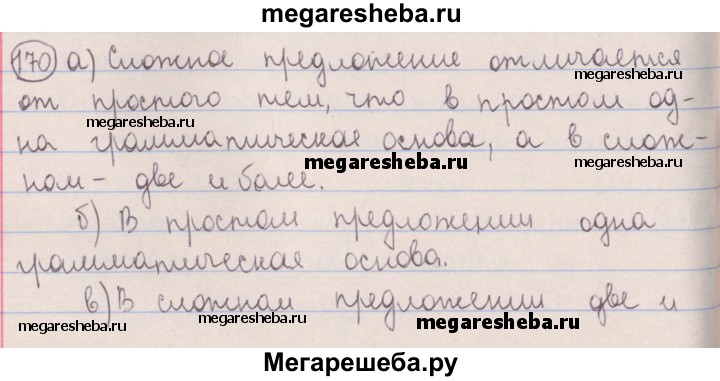 megaresheba.ru
170 а) Сложное предложение отличается
megaresheba.ru
от простого тем, что в простом од-
megaresheba.ru
megaresheba.ru
на грамматическая основа, а в слож-
megaresheba.ru
megaresheba.ru
ном - две и более.
б) В простом предложении одна
грамматическая основа.
в) В сложном предложении две и
megaresheba.ru
megaresheba.ru
megaresheba.ru
Мегарешеба.ру